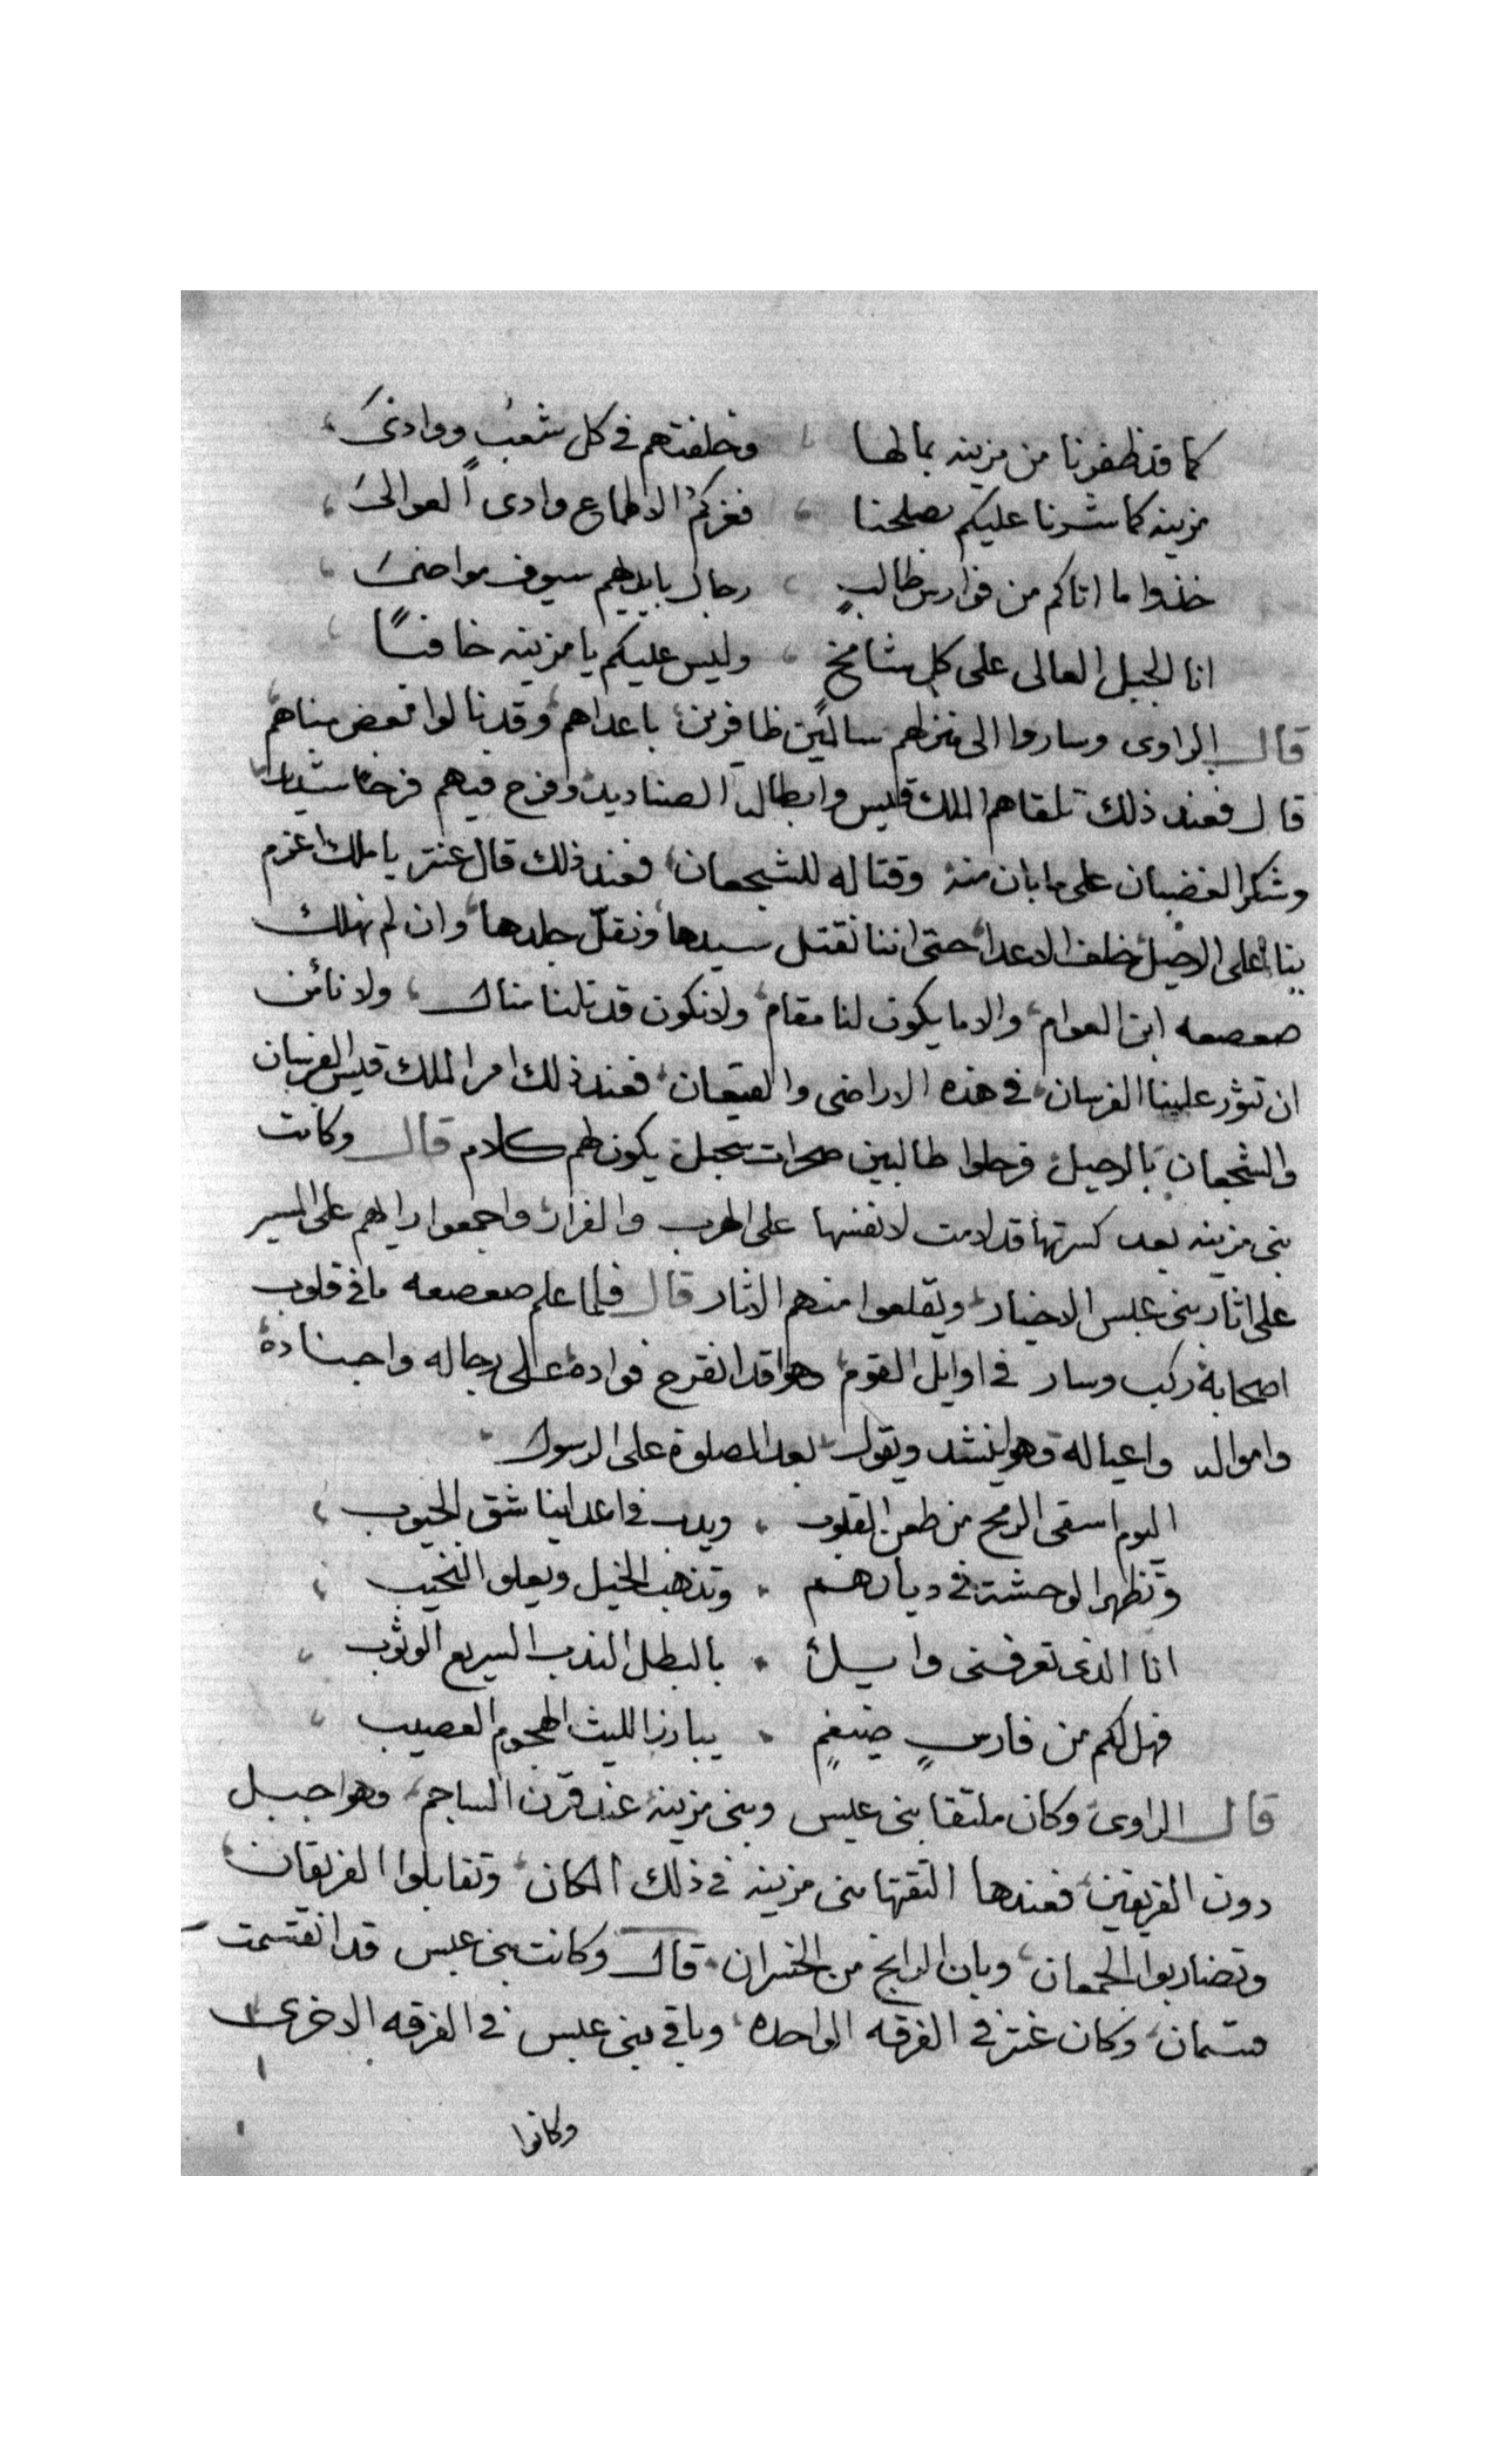 كما قد ظفرنا من مزينه بمالها وخلفتهم في كل شعب ووادي
مزينه كما شرنا عليكم بصلحنا فغركم الاطماع وادى العوالي
خذوا ما اتاكم من فوارس طالبٍ رجال بايديهم سيوف مواضي
انا الجبل العالى على كل شامخ وليس عليكم يا مزينه خافيًا
قال الراوى وساروا الى منزلهم سالمين ظافرين باعداهم وقد نالوا بعض مناهم
قال فعند ذلك تلقاهم الملك قيس وابطاله الصناديد وفرح فيهم فرحا شديدا
وشكر الغضبان على ما بان منه وقتاله للشجعان فعند ذلك قال عنتر يا ملك اعزم
بنا على الرحيل خلف الاعدا حتى اننا نقتل سيدها ونقلّ جلدها وان لم نهلك
صعصعه ابن العوام والا ما يكون لنا مقام ولا نكون قد نلنا مناك ولا نائمن
ان تثور علينا الفرسان في هذه الاراضى والقيعان فعند ذلك امر الملك قيس الفرسان
والشجعان بالرحيل فرحلوا طالبين صحرات سجيل يكون لهم كلام قال وكانت
بنى مزينه بعد كسرتها قد لامت لانفسها على الهرب والفرار واجمعوا رايهم على المسير
على اثار بنى عبس الاخيار ويقلعوا منهم الاثار قال فلما علم صعصعه ما في قلوب
اصحابه ركب وسار في اوايل القوم وهوا قد انقرح فواده على رجاله واجناده
وامواله واعياله وهوا ينشد ويقول بعد الصلوة على الرسول
اليوم اسقى الرمح من طعن القلوب ويدب في اعداينا شق الجيوب
وتظهر الوحشة في ديارهم وتذهب الخيل ويعلو النحيب
انا الذى تعرفنى وايل بالبطل الندب السريع الوثوب
فهل لكم من فارسٍ ضيغمٍ يبارز الليث الهجوم العصيب
قال الراوى وكان ملتقا بنى عبس وبنى مزينه عند قرن الساجم وهوا جبل
دون الفريقين فعندها التقتها بنى مزينه في ذلك المكان وتقابلوا الفريقان
وتضاربوا الجمعان وبان الرابح من الخسران قال وكانت بنى عبس قد انقسمت
قسمان وكان عنتر في الفرقه الواحده وباقي بنى عبس في الفرقه الاخرى
وكانوا